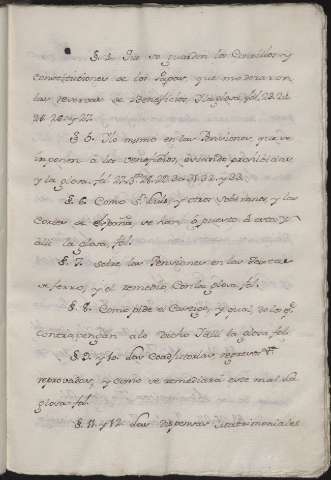 §. 4. Que se guarden los Concilios y
Constituciones de los Papas, que moderaron
las reservas de Beneficios, y la glosa, fol. 23. 24.
26. y 27.
§. 5. Lo mismo en las Pensiones, que se
imponen á los Beneficios,
y la glosa, fol. 27. 28. 30. 31. 32. y 33.
§. 6. Como Sn. Luis, y otros Soberanos, y las
Cortes de España, se han opuesto á esto, y
allí la glosa, fol.
§. 7. Sobre las Pensiones en las
y el remedio. Con la glosa fol.
§. 8. Como pide el Castigo, y qual, de los q.
contravengan á lo dicho. Y allí la glosa fol.
§. 9. y 10. Las Coadjutorias, regresos
reprovados, y como se remediará este mal. La
glosa fol.
§. 11. y 12. Las Dispensas Matrimoniales